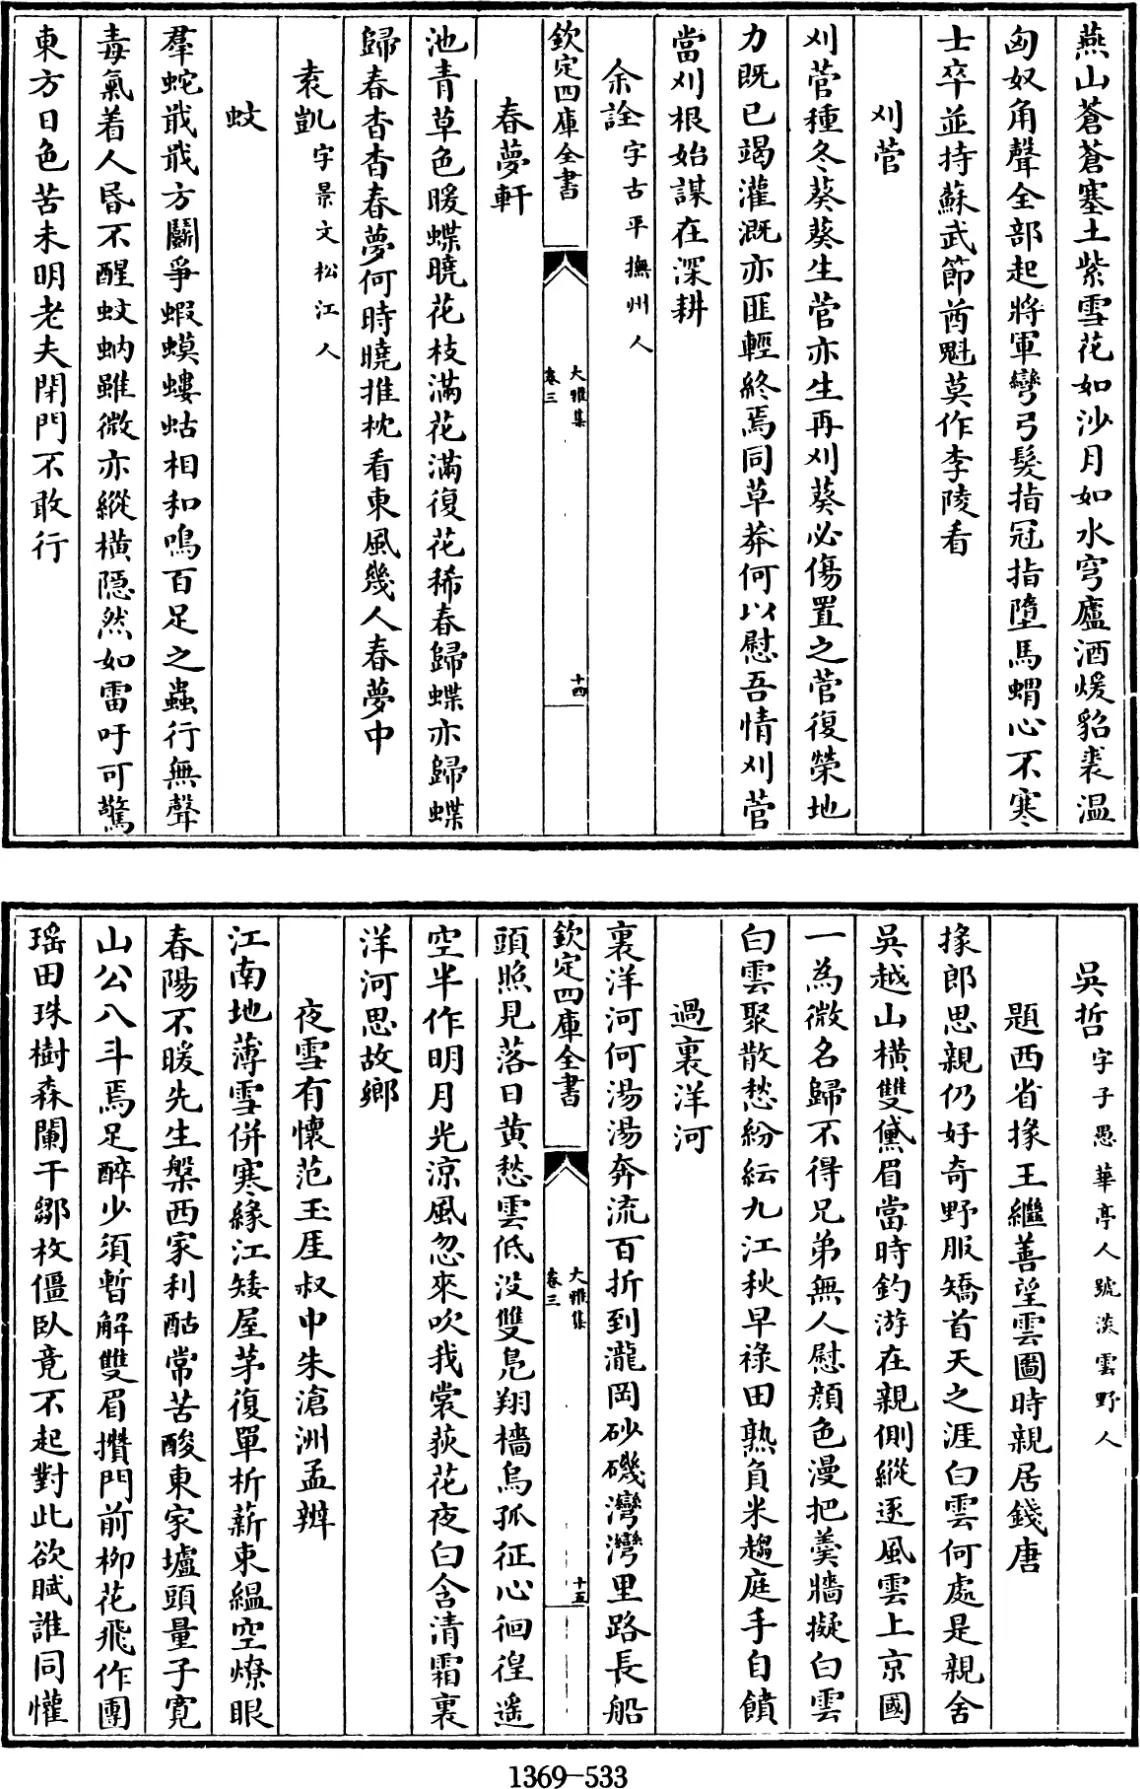 燕山蒼蒼塞土紫雪花如沙月如水穹廬酒煖貂裘温
匈奴角聲全部起將軍彎弓髮指冠指墮馬蝟心不寒
士卒並持蘇武節酋魁莫作李陵看
刈菅
刈菅種冬葵葵生菅亦生再刈葵必傷置之菅復榮地
力既已竭灌溉亦匪輕終焉同草莽何以慰吾情刈菅
當刈根始謀在深耕
余詮字古平撫州人
欽定四庫全書
大雅集
卷三
十四
春夢軒
池青草色暖蝶曉花枝滿花滿復花稀春歸蝶亦歸蝶
歸春杳杳春夢何時曉推枕看東風幾人春夢中
袁凱字景文松江人
蚊
羣蛇戢戢方鬭爭蝦蟆螻蛄相和鳴百足之蟲行無聲
毒氣着人昬不醒蚊蚋雖微亦縱橫隱然如雷吁可驚
東方日色苦未明老夫閉門不敢行
吳哲字子愚華亭人號淡雲野人
題西省掾王繼善望雲圖時親居錢唐
掾郎思親仍好奇野服矯首天之涯白雲何處是親舍
吳越山橫雙黛眉當時釣游在親側縱逐風雲上京國
一為微名歸不得兄弟無人慰顔色漫把羮牆擬白雲
白雲聚散愁紛紜九江秋早祿田熟負米趨庭手自饋
過裏洋河
裏洋河何湯湯奔流百折到瀧岡砂磯灣灣里路長船
欽定四庫全書
大雅集
卷三
十五
頭照見落日黄愁雲低没雙鳬翔檣烏孤征心徊徨遥
空半作明月光涼風忽來吹我裳荻花夜白含清霜裏
洋河思故鄉
夜雪有懷范玉厓叔中朱滄洲孟辨
江南地薄雪併寒緣江矮屋茅復單析薪束緼空燎眼
春陽不暖先生槃西家利酤常苦酸東家壚頭量子寛
山公八斗焉足醉少須暫解雙眉攢門前栁花飛作團
瑶田珠樹森闌干鄒枚僵臥竟不起對此欲賦誰同懽
1369—533